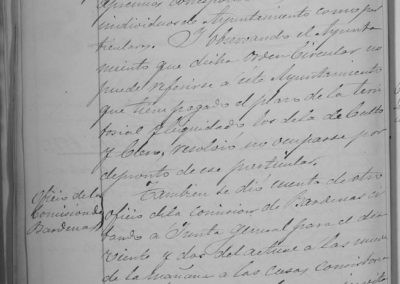 apremios
individuos de Ayuntamiento como par
ticulares. Y observando el Ayunta
miento que dicha Orden Circular no
puede referirse a este Ayuntamiento
que tiene pagado el plazo de la terri
torial y liquidado los de la de Culto
y Clero, resolvio no ocuparse por
depronto de ese particular.
Oficio de la
Comision de
Bardenas
Tambien se dió cuenta de otro
oficio de la comision de Bardenas ci
tando a Junta general para el dia
veinte y dos del actual a las nueve
de la mañana a las casas consistoria